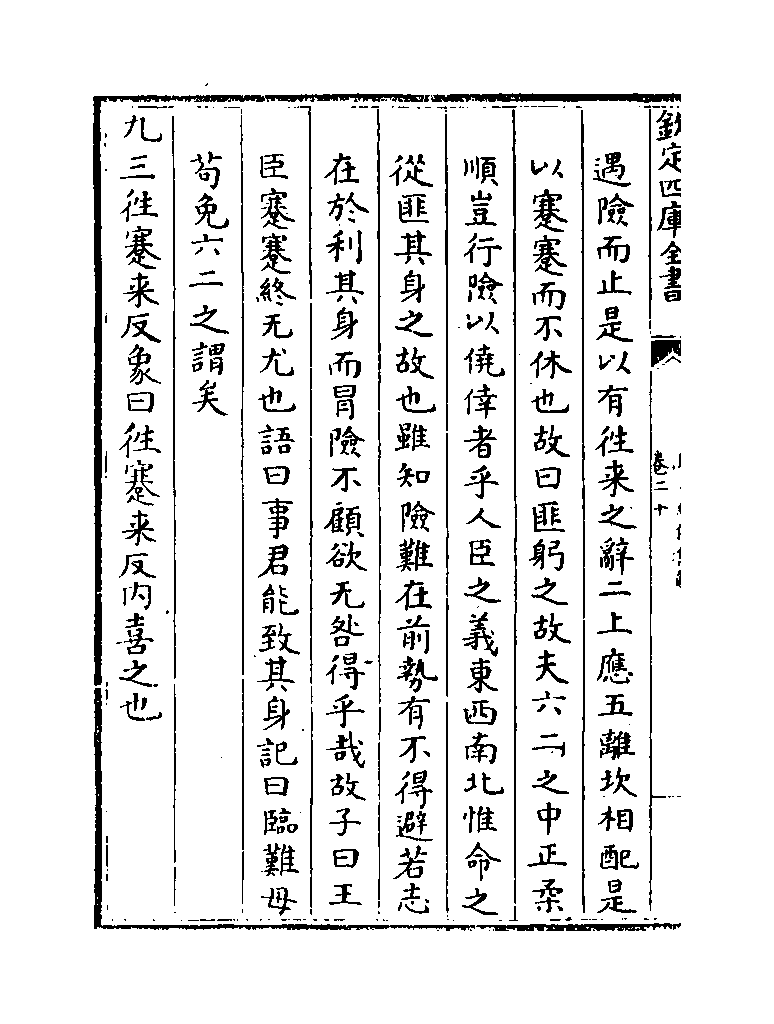 欽定四庫全書
卷二十
遇險而止是以有徃来之辭二上應五離坎相配是
以蹇蹇而不休也故曰匪躬之故夫六二之中正柔
順豈行險以僥倖者乎人臣之義東西南北惟命之
從匪其身之故也雖知險難在前勢有不得避若志
在於利其身而冒險不顧欲无咎得乎哉故子曰王
臣蹇蹇終无尤也語曰事君能致其身記曰臨難毋
茍免六二之謂矣
九三徃蹇来反象曰徃蹇来反内喜之也